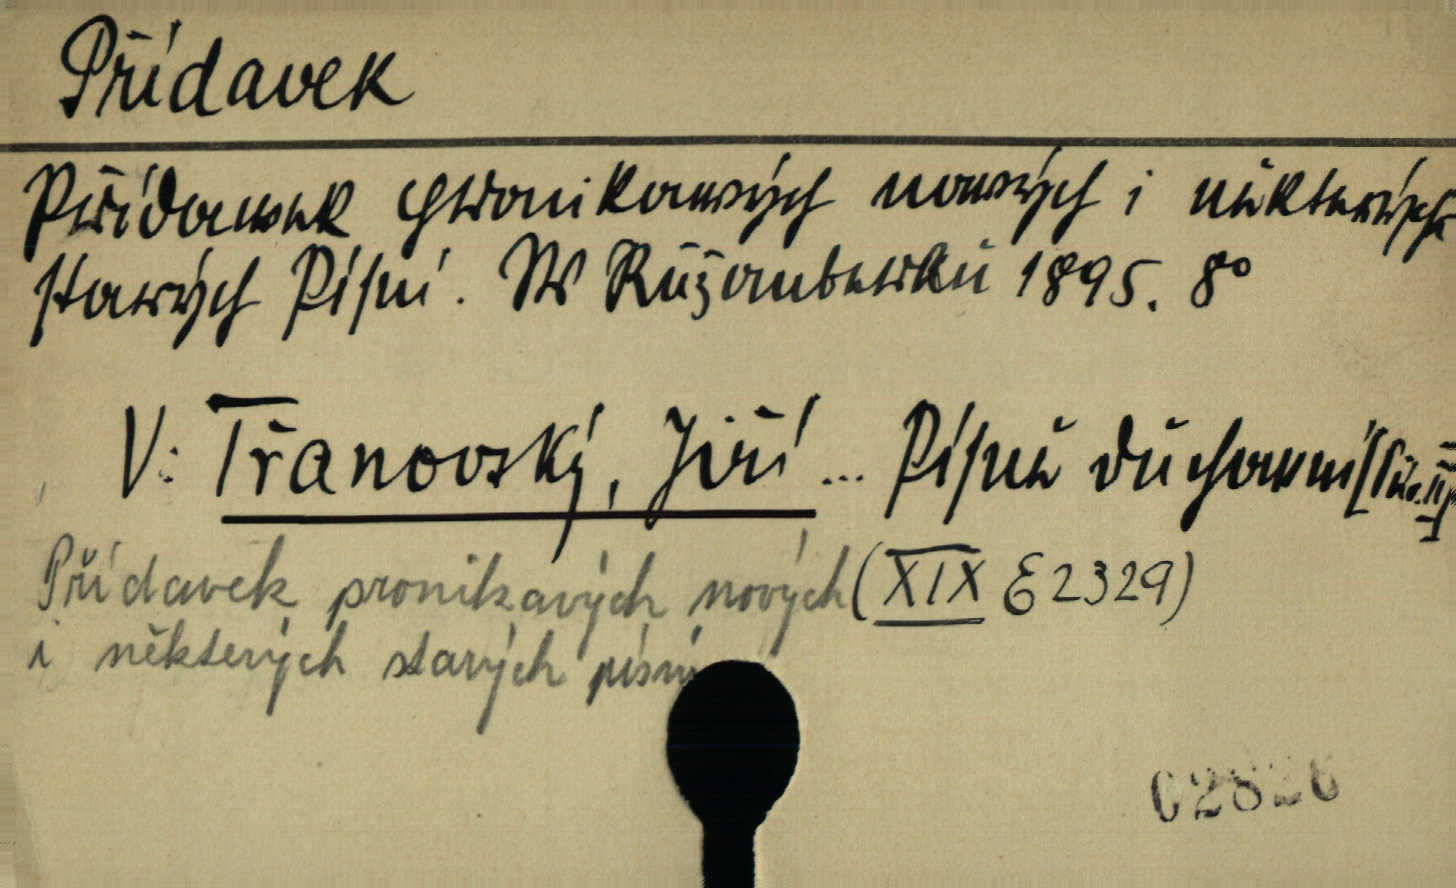 Přídavek
Přídawek pronikawých nowých i některých
starých Písní. W Růžomberku 1895. 8°
V: Třanovský, Jiří ... Písně duchovní
Přídavek pronikavých nových (XIX E 2329)
i některých starých písní
02826